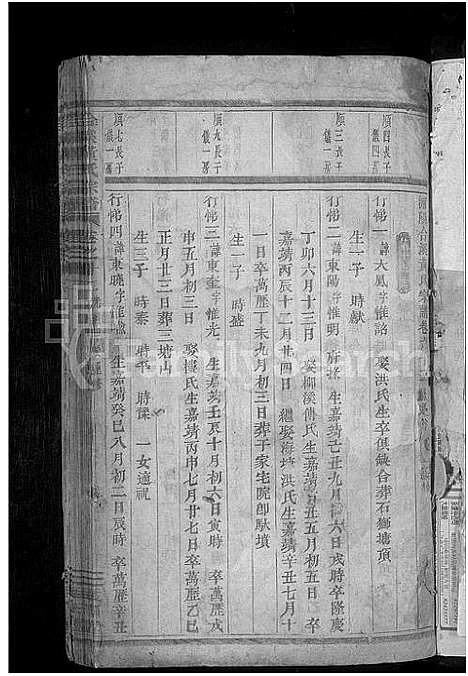 順四長子
儀四房
行悌一 諱大鳳字惟韶 娶洪氏生卒俱缺合葬石獅塘頂
生一子 時獻
順三長子
儀一房
行悌二 諱東陽字惟明 生嘉靖己丑九月 六日戌時卒隆慶
丁卯六月十三日 娶柳溪傅氏生嘉靖 丑五月初五日 卒
嘉靖丙辰十二月廿四日 繼娶海 洪氏生嘉靖辛丑七月十
一日卒萬歷丁未九月初三日葬于家宅院卽馱墳
生一子 時盛
順九長子
儀一房
行悌三 諱東奎字惟光 生嘉靖壬亥十月初六日寅時 卒萬歷戊
申五月初三日 娶樓氏生嘉靖丙申七月廿七日 卒萬歷乙巳
正月廿三日葬三塘山
生三子 時泰 時平 時保 一女適祝
順七長子
儀一房
行悌四 諱東曉字惟 生嘉靖癸巳八月初二日辰時 卒萬歷辛丑
FamilySearch